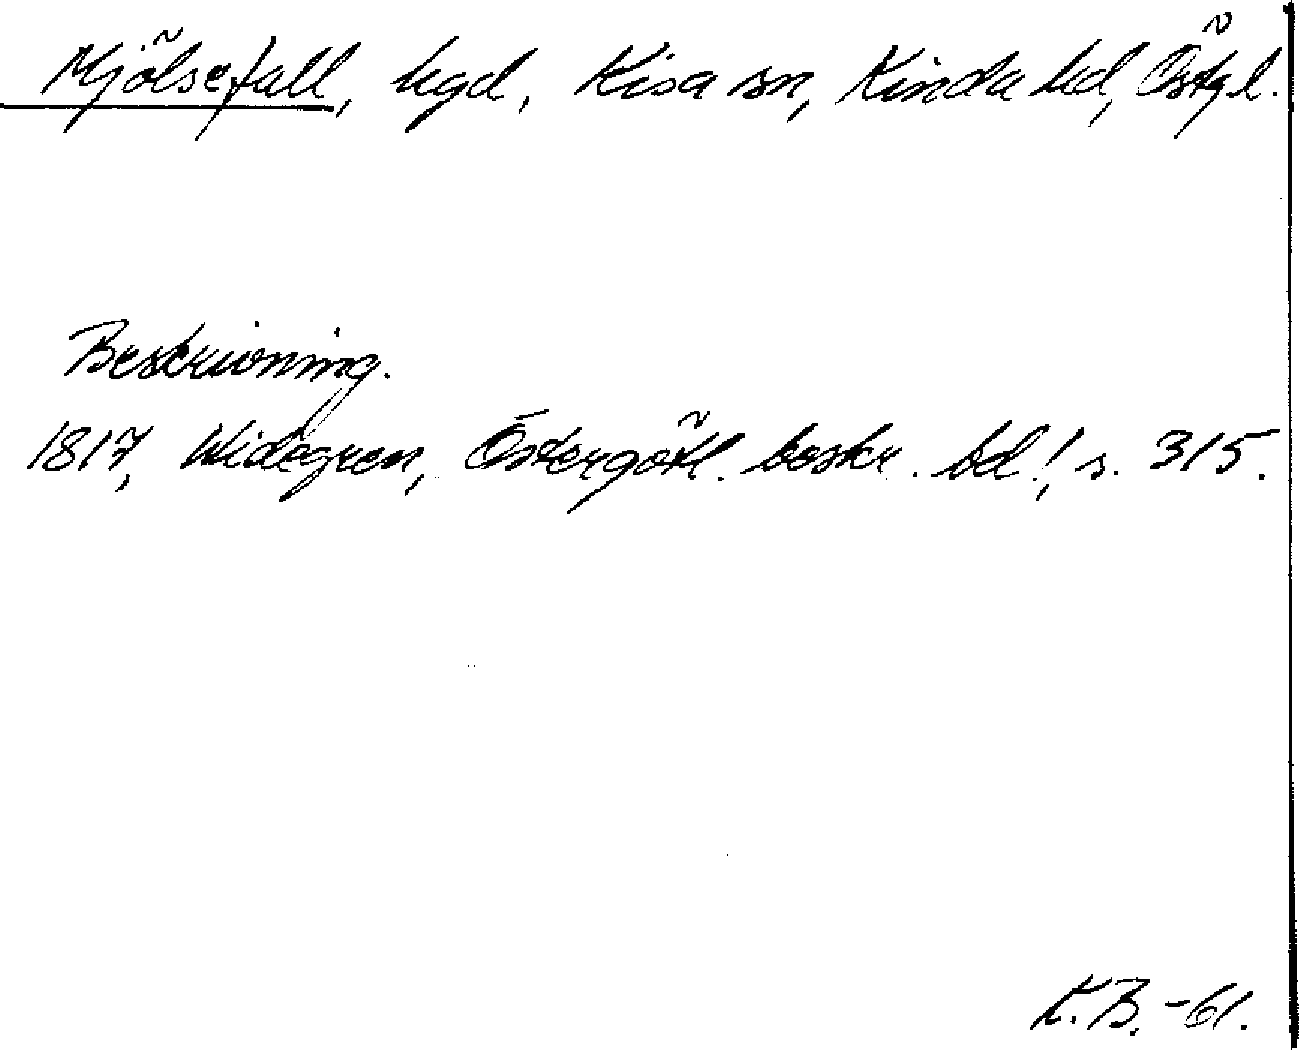 Mjölsefall, hgd, Kisa sn, Kinda hd, Östgl.
Beskrivning.
1817, Widegren, Östergötl. beskr. bd 1, s. 315.
K.B. -61.